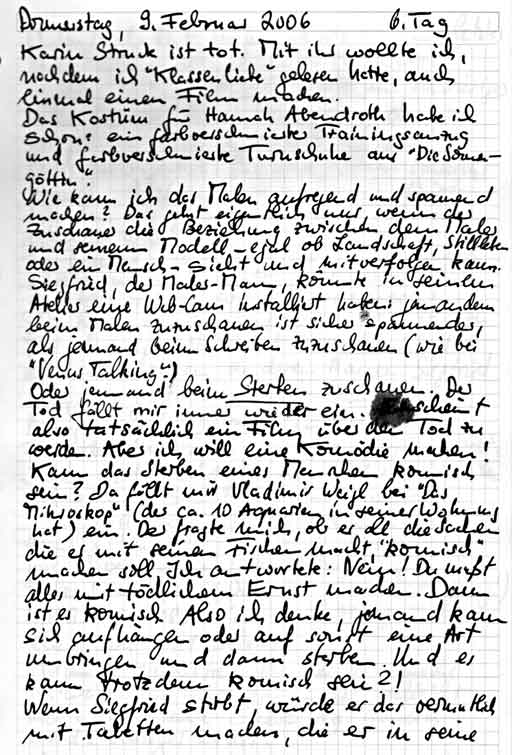 Donnerstag, 9. Februar 2006 6. Tag
Karin Struck ist tot. Mit ihr wollte ich,
nachdem ich "Klassenliebe" gelesen hatte, auch
einmal einen Film machen.
Das Kostüm für Hannah Abendroth habe ich
schon: ein farbverschmierter Trainingsanzug
und farbverschmierte Turnschuhe aus "Die Sonnen-
göttin".
Wie kann ich das Malen aufregend und spannend
machen? Das geht eigentlich nur, wenn der
Zuschauer die Beziehung zwischen dem Maler
und seinem Modell - egal ob Landschaft, Stillleben
oder ein Mensch - sieht und mitverfolgen kann.
Siegfried, der Maler-Mann, könnte in seinem
Atelier eine Web-Cam installiert haben: jemandem
beim Malen zuzuschauen ist sicher spannender,
als jemand beim Schreiben zuzuschauen (wie bei
"Venus Talking".)
Oder jemand beim Sterben zuschauen. Der
Tod fällt mir immer wieder ein. scheint
also tatsächlich ein Film über den Tod zu
werden. Aber ich will eine Komödie machen!
Kann das Sterben eines Menschen komisch
sein? Da fällt mir Vladimir Weigl bei "Das
Mikroskop" (der ca. 10 Aquarien in seiner Wohnung
hat) ein. Der fragte mich, ob er all die Sachen
die er mit seinen Fischen macht, "komisch"
machen soll. Ich antwortete: Nein! Du mußt
alles mit tödlichem Ernst machen. Dann
ist es komisch. Also ich denke, jemand kann
sich aufhängen oder auf sonst eine Art
umbringen und dann sterben. Und es
kann trotzdem komisch sein?!
Wenn Siegfried stirbt, würde er das vermutlich
mit Tabletten machen, die er in seine